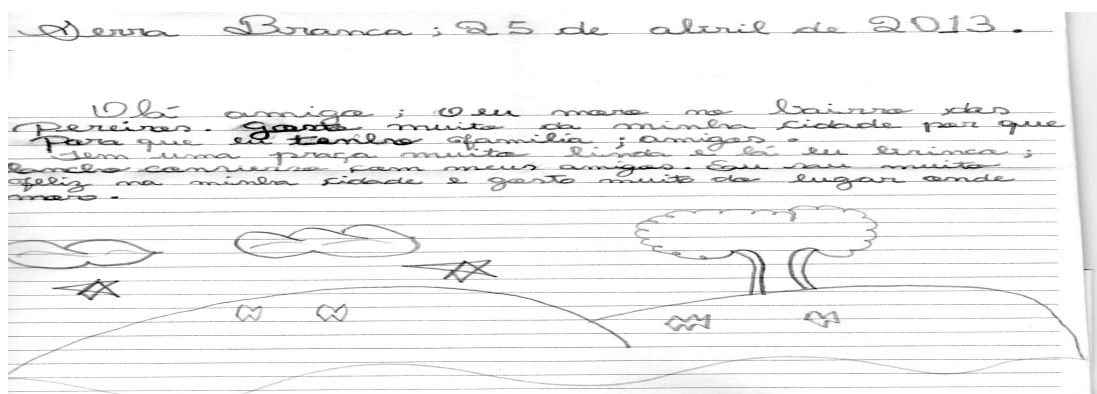 Serra Branca; 25 de abril de 2013.
Olá amiga; eu moro no bairro das
Pereiros. Gosto muito da minha cidade por que
Para que eu tenho família; amigos.
Tem uma praça muito linda e lá eu brinco;
lancho converso com meus amigos Eu sou muito
feliz na minha cidade e gosto muito do lugar onde
moro.